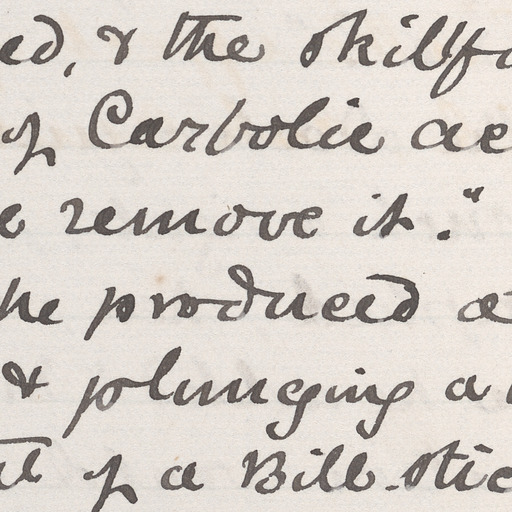 ed, & the skilfu
of Carbolic ac
e remove it."
he produced a
& plunging a
of a Bill-stic